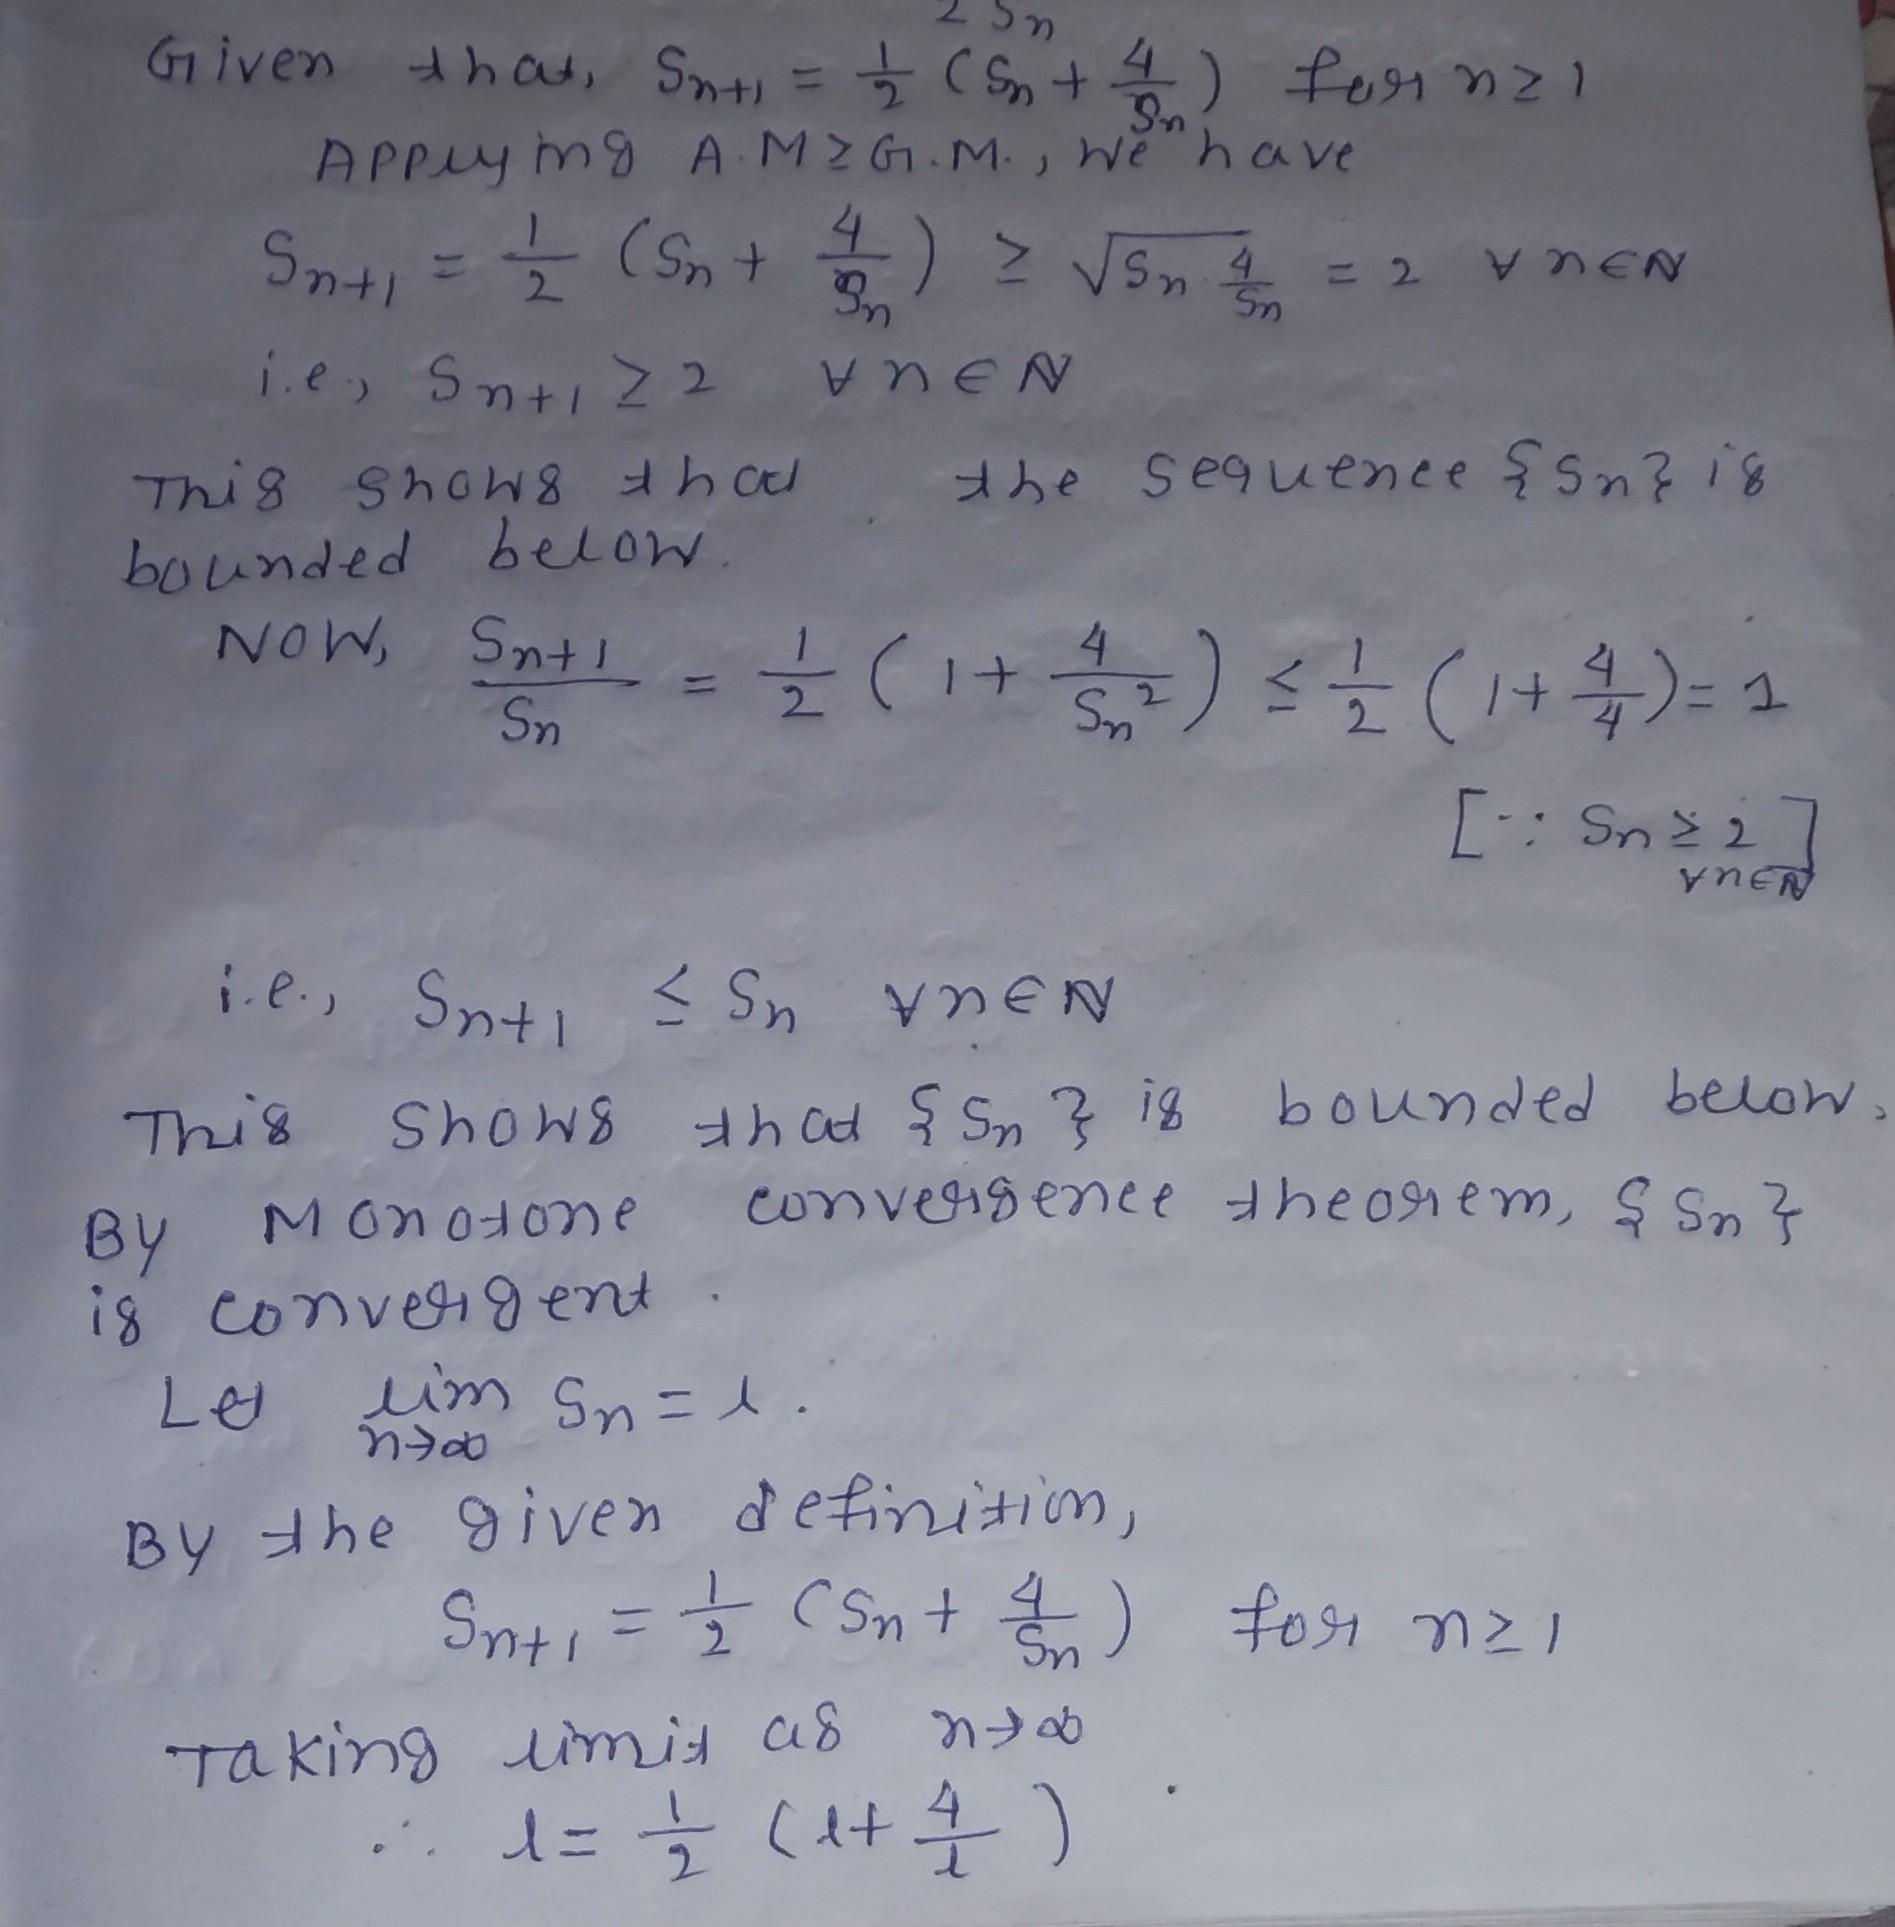 2 Sn
Given that, Sn+1 = 1/2 (Sn + 4/Sn) for n ≥ 1
Applying A.M ≥ G.M., we have
Sn+1 = 1/2 (Sn + 4/Sn) ≥ √(Sn · 4/Sn) = 2 ∀ n ∈ ℕ
i.e., Sn+1 ≥ 2 ∀ n ∈ ℕ
This shows that the sequence {Sn} is
bounded below.
Now, Sn+1/Sn = 1/2 (1 + 4/Sn²) ≤ 1/2 (1 + 4/4) = 1
[∵ Sn ≥ 2
∀ n ∈ ℕ]
i.e., Sn+1 ≤ Sn ∀ n ∈ ℕ
This shows that {Sn} is bounded below.
By Monotone convergence theorem, {Sn}
is convergent.
Let lim n→∞ Sn = l.
By the given definition,
Sn+1 = 1/2 (Sn + 4/Sn) for n ≥ 1
Taking limit as n→∞
∴ l = 1/2 (l + 4/l)